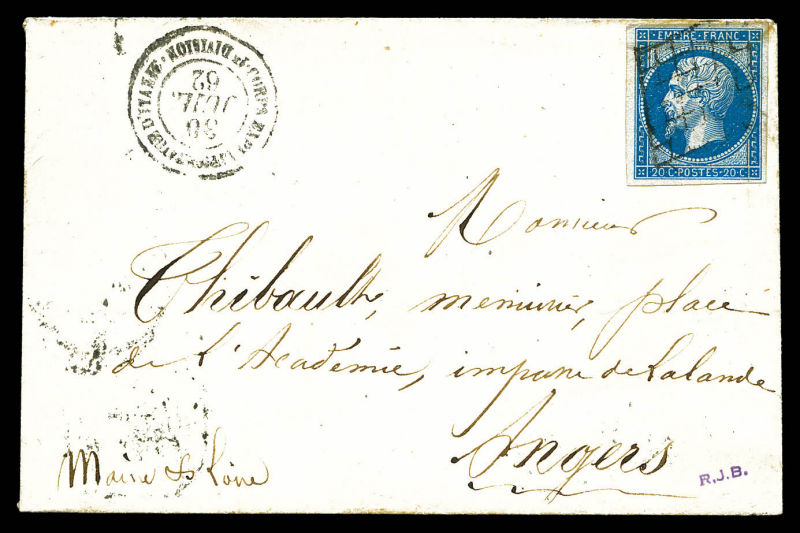 EMPIRE FRANC
20 C · POSTES · 20 C
30
JUIL
62
Monsieur
Thibault, menuisier, place
de l'Académie, impasse de Lalande
Angers
Maine & Loire
R.J.B.